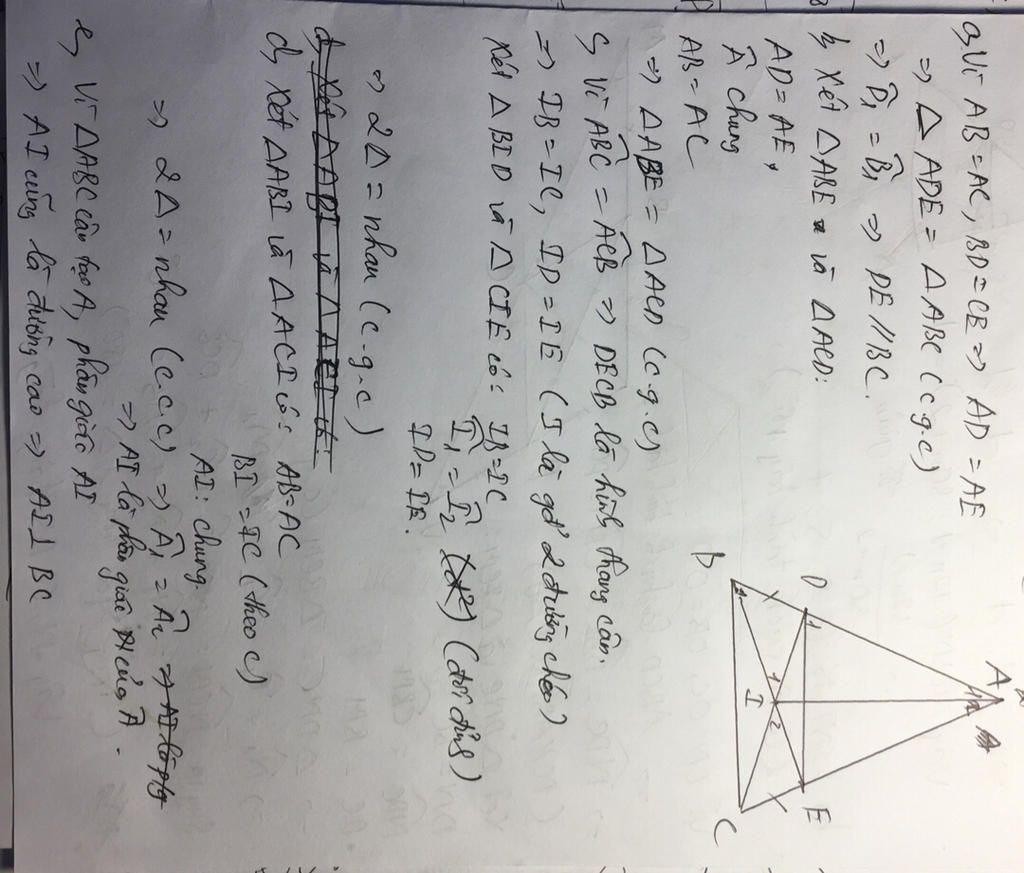 a, Vì AB = AC, BD = CE ⇒ AD = AE
⇒ △ ADE = △ ABC (c.g.c)
⇒ D̂₁ = B̂₁ ⇒ DE // BC.
b, Xét △ABE và △ACD:
AD = AE,
Â chung
AB = AC
⇒ △ABE = △ACD (c.g.c)
c, Vì ABC = ACB ⇒ DECB là hình thang cân.
⇒ IB = IC, ID = IE ( I là gđ 2 đường chéo)
Xét △ BID và △ CIE có: IB = IC
Î₁ = Î₂ (đối đỉnh)
ID = IE.
⇒ 2△ = nhau (c-g-c)
d, Xét △ABI và △ACI có:
d, Xét △ABI và △ACI có: AB = AC
BI = IC (theo c)
AI: chung.
⇒ 2△ = nhau (c.c.c) ⇒ Â₁ = Â₂ ⇒ AI là p/g
⇒ AI là phân giác của Â.
e, Vì △ABC cân tại A, phân giác AI
⇒ AI cũng là đường cao ⇒ AI ⊥ BC
A
1 2
D
1
E
1
I
2
B
1
C